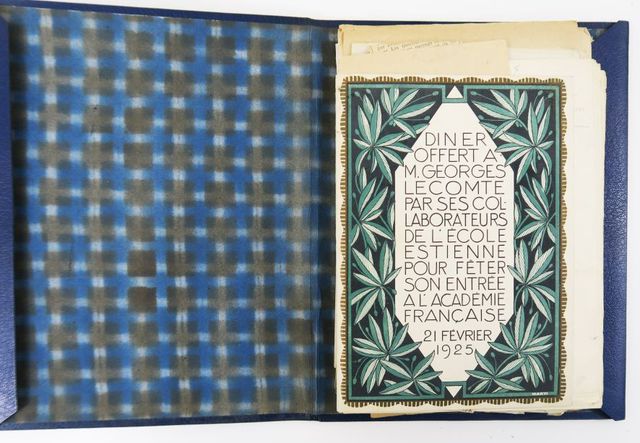 DINER
OFFERT A
M. GEORGES
LECOMTE
PAR SES COL-
LABORATEURS
DE L'ÉCOLE
ESTIENNE
POUR FÊTER
SON ENTRÉE
A L'ACADÉMIE
FRANÇAISE
21 FÉVRIER
1925